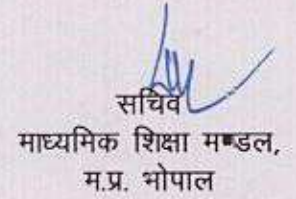 सचिव
माध्यमिक शिक्षा मण्डल,
म.प्र. भोपाल